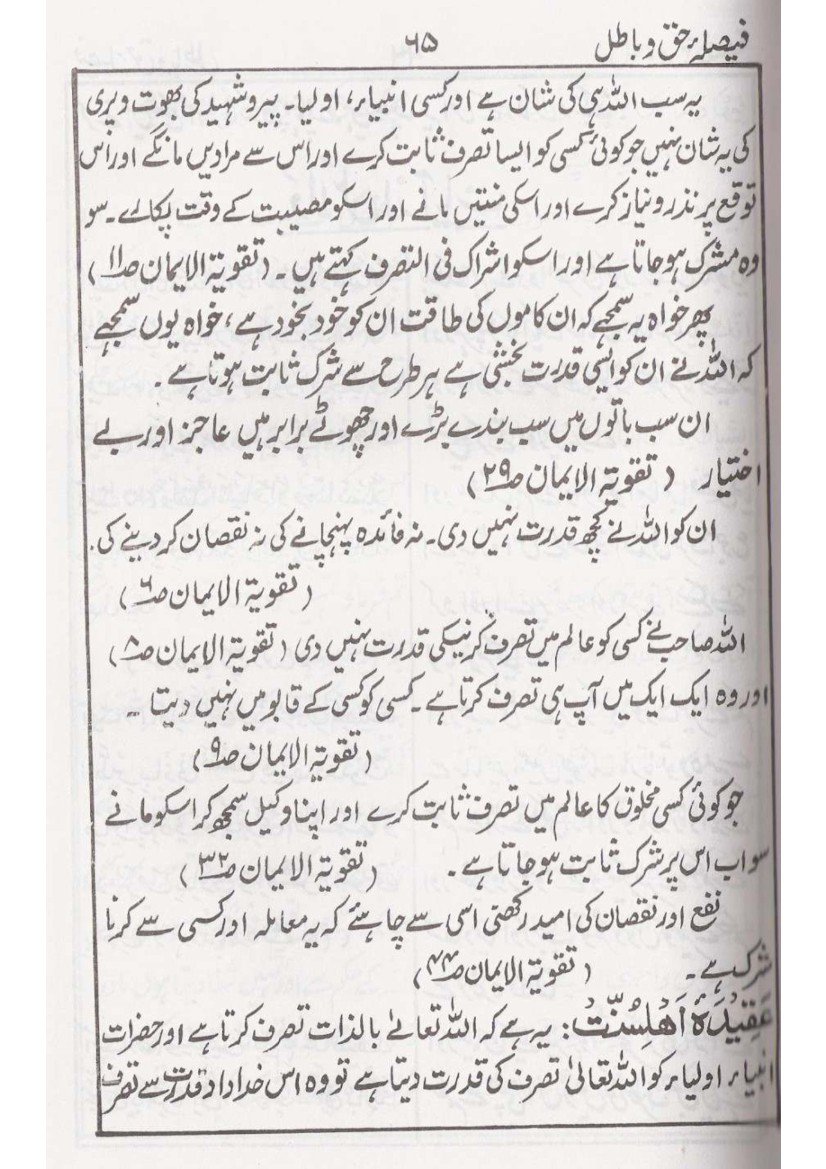 فیصلۂ حق و باطل ۶۵
یہ سب اللہ ہی کی شان ہے اور کسی انبیاء، اولیا۔ پیر و شہید کی بھوت و پری
کی یہ شان نہیں جو کوئی کسی کو ایسا تصرف ثابت کرے اور اس سے مرادیں مانگے اور اس
توقع پر نذر و نیاز کرے اور اسکی منتیں مانے اور اسکو مصیبت کے وقت پکارے۔ سو
وہ مشرک ہو جاتا ہے اور اسکو اشراک فی التصرف کہتے ہیں۔ (تقویۃ الایمان صـ۱۱)
پھر خواہ یہ سمجھے کہ ان کاموں کی طاقت ان کو خود بخود ہے، خواہ یوں سمجھے
کہ اللہ نے ان کو ایسی قدرت بخشی ہے ہر طرح سے شرک ثابت ہوتا ہے۔
ان سب باتوں میں سب بندے بڑے اور چھوٹے برابر ہیں عاجز اور بے
اختیار (تقویۃ الایمان صـ۲۹)
ان کو اللہ نے کچھ قدرت نہیں دی۔ نہ فائدہ پہنچانے کی نہ نقصان کر دینے کی.
(تقویۃ الایمان صـ۶)
اللہ صاحب نے کسی کو عالم میں تصرف کرنیکی قدرت نہیں دی (تقویۃ الایمان صـ۸)
اور وہ ایک ایک میں آپ ہی تصرف کرتا ہے۔ کسی کو کسی کے قابو میں نہیں دیتا۔
(تقویۃ الایمان صـ۹)
جو کوئی کسی مخلوق کا عالم میں تصرف ثابت کرے اور اپنا وکیل سمجھ کر اسکو مانے
سو اب اس پر شرک ثابت ہو جاتا ہے۔ (تقویۃ الایمان صـ۳۲)
نفع اور نقصان کی امید رکھنی اسی سے چاہئے کہ یہ معاملہ اور کسی سے کرنا
شرک ہے۔ (تقویۃ الایمان صـ۴۴)
عَقِیْدَۂ اَھْلِسُنّتْ: یہ ہے کہ اللہ تعالےٰ بالذات تصرف کرتا ہے اور حضرات
انبیاء اولیاء کو اللہ تعالیٰ تصرف کی قدرت دیتا ہے تو وہ اس خداداد قدرت سے تصرف